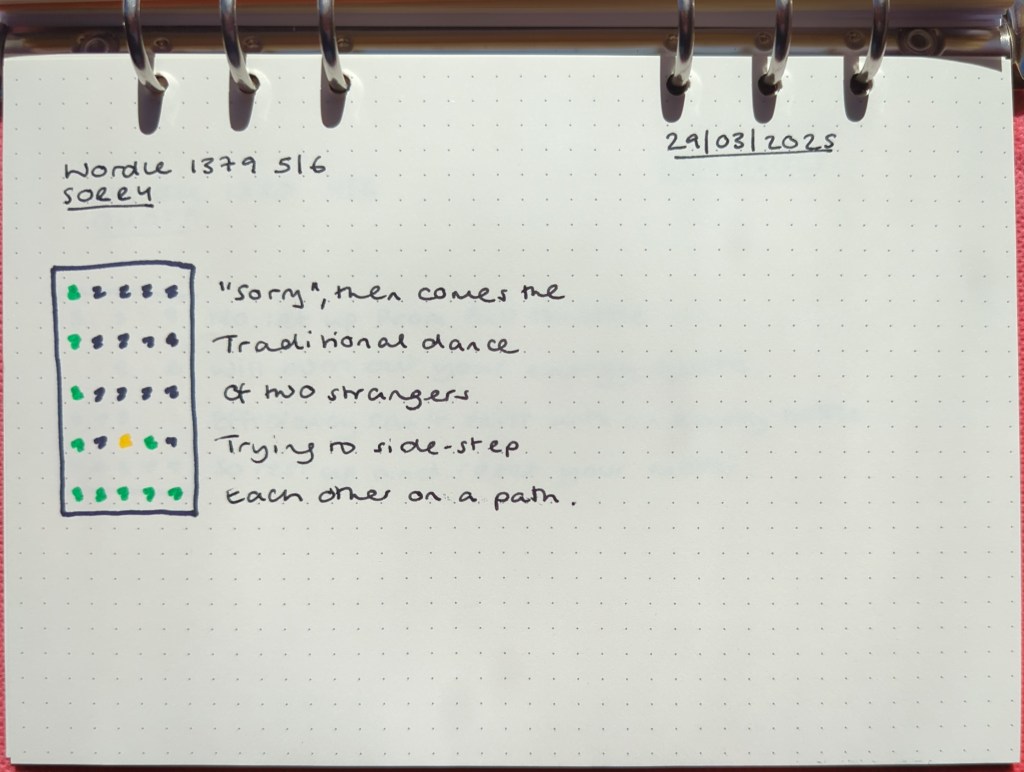 29/03/2025
Wordle 1379 5/6
SORRY
"Sorry", then comes the
Traditional dance
Of two strangers
Trying to side-step
Each other on a path.